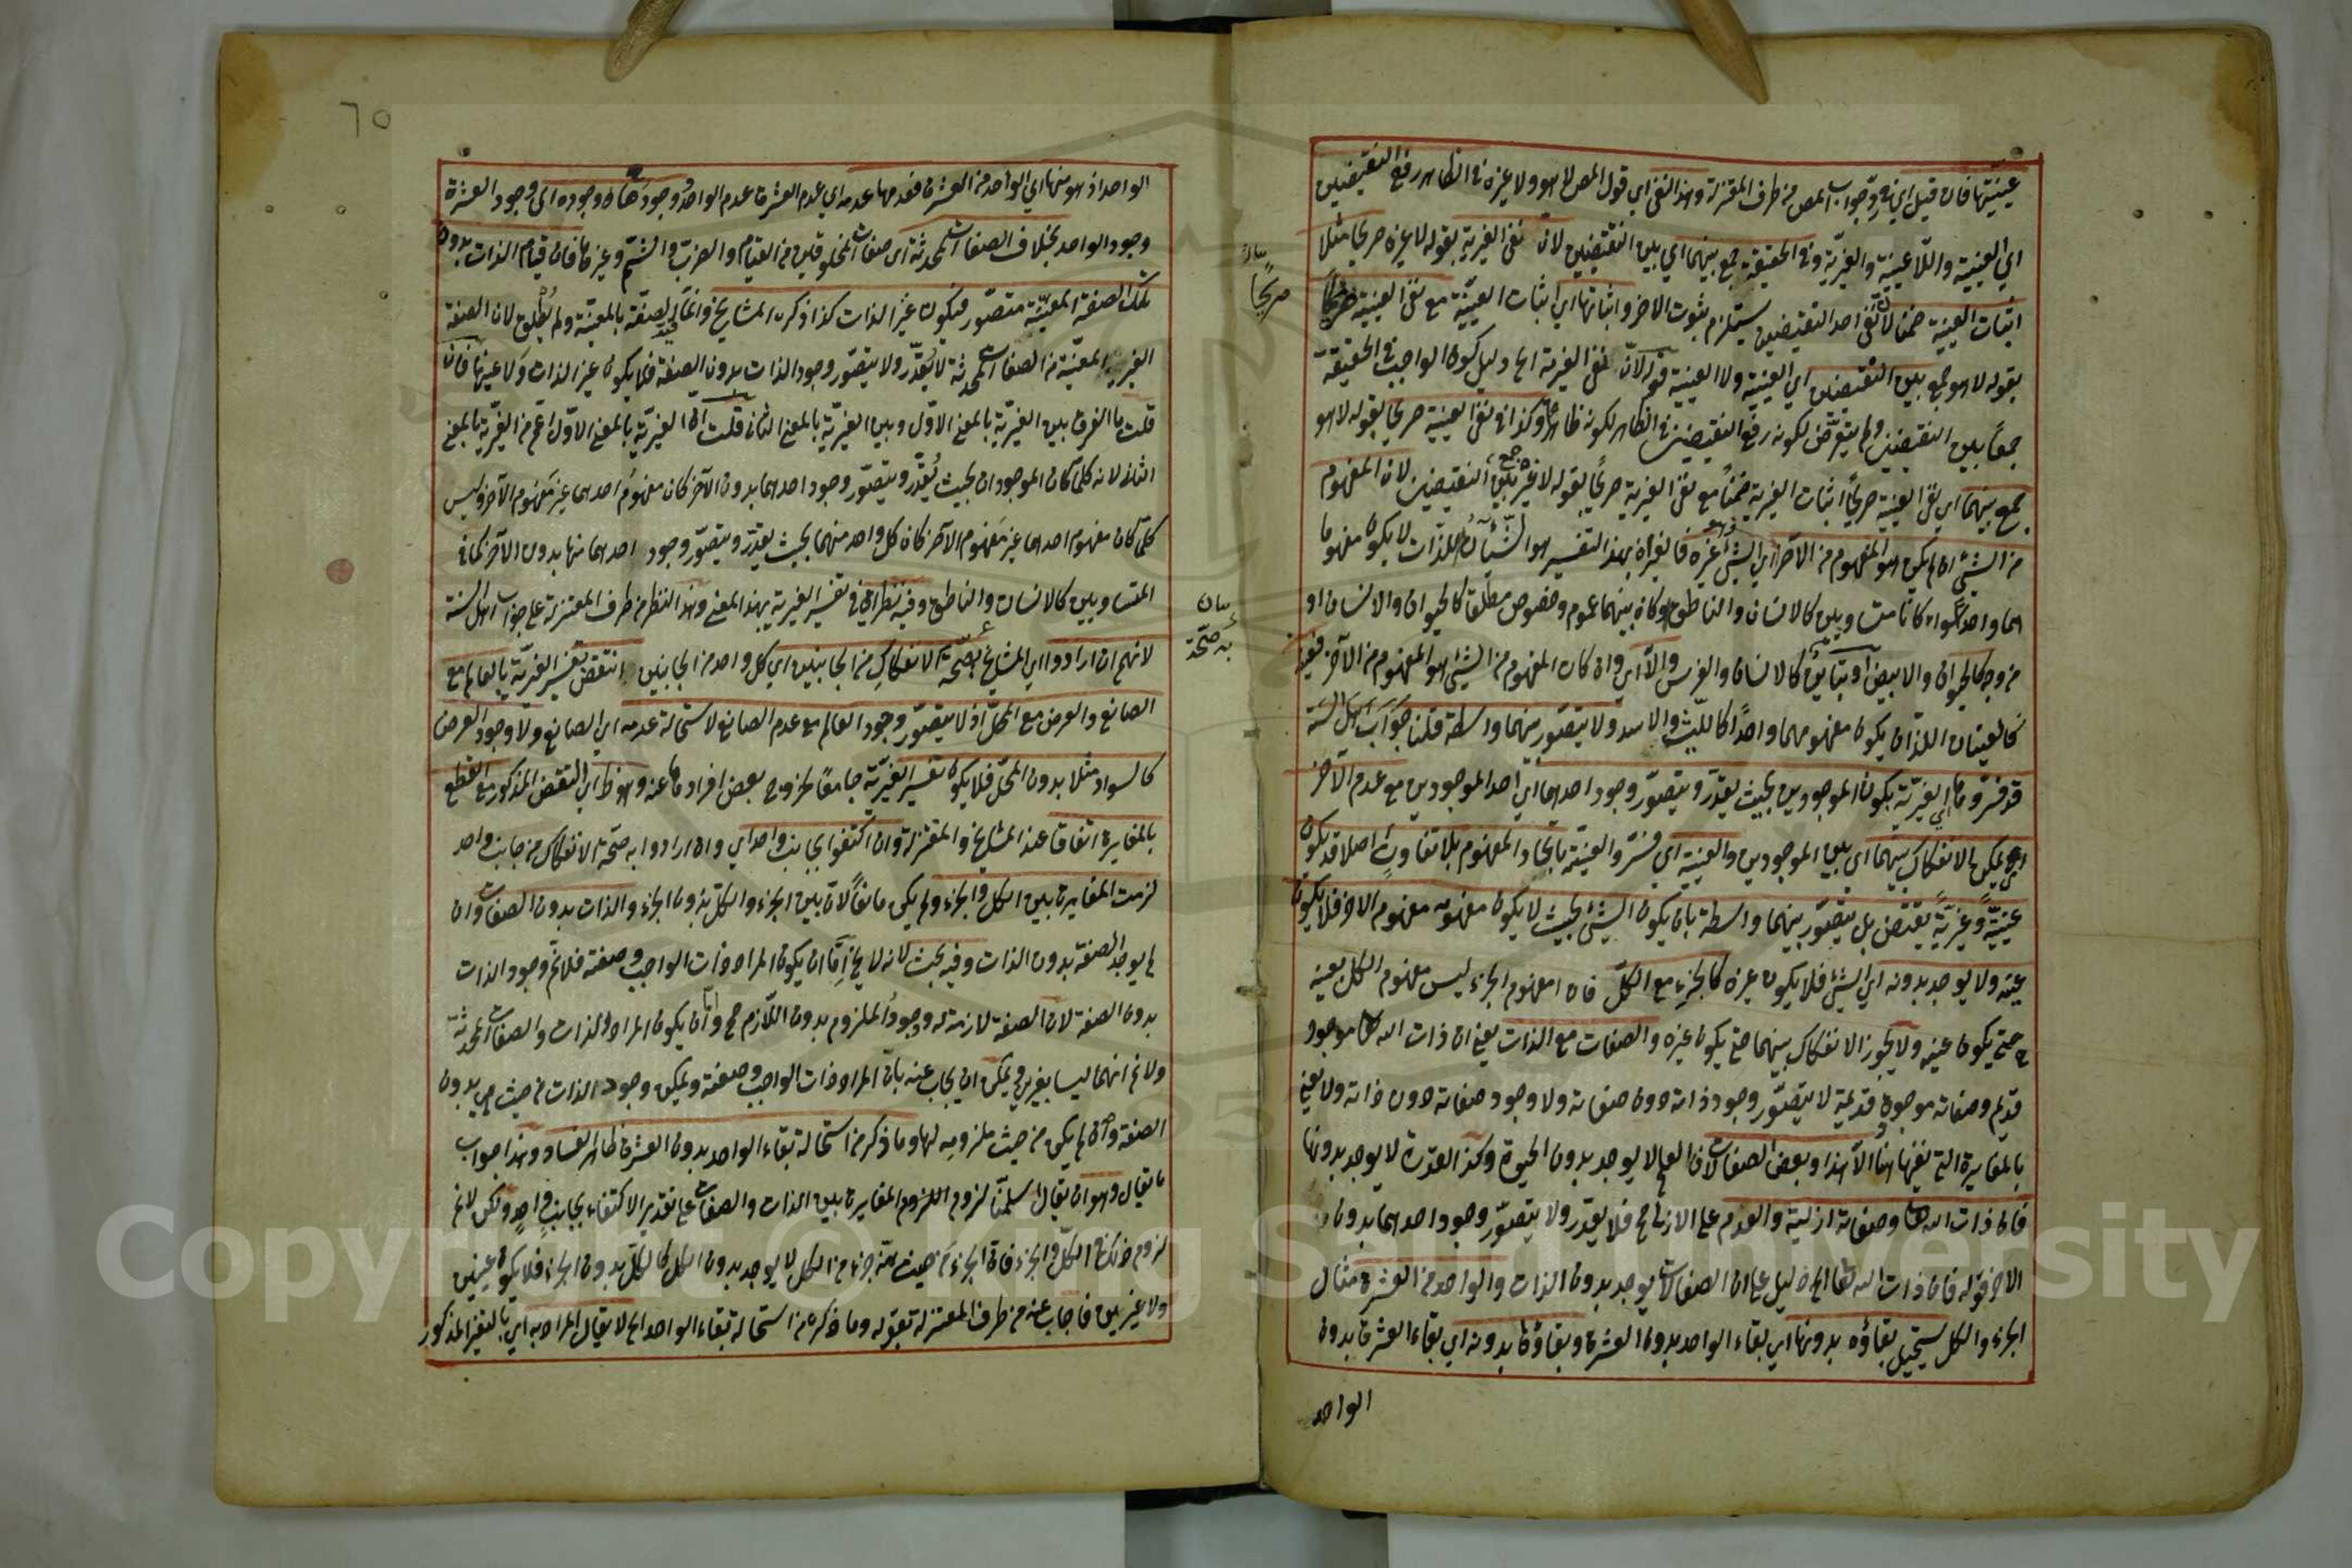 عينيتها فان قيل اي في جواب المص من طرف المعتزلة وهذا النفي اي قول المص لا هو ولا غيره في الظاهر رفع النقيضين
اي العينية واللاعينية والغيرية وفي الحقيقة جمع بينهما اي بين النقيضين لان نفي الغيرية بقوله لا غيره صريحا مثلا
اثبات العينية ضمنا لان نفي احد النقيضين يستلزم ثبوت الاخر واثباتها اي اثبات العينية مع نفي العينية صريحا
بقوله لا هو جمع بين النقيضين اي العينية ولا العينية قوله لان نفي الغيرية الخ دليل كون الواجب في الحقيقة
جمعا بين النقيضين ولم يتعرض لكونه رفع النقيضين في الظاهر لكونه ظاهرا وكذا في نفي العينية صريحا بقوله لا هو
جمع بينهما اي نفي العينية صريحا اثبات الغيرية ضمنا مع نفي الغيرية صريحا بقوله لا غيره جمع بين النقيضين لان المفهوم
من الشيء ان لم يكن هو المفهوم من الآخر اي الشيء فهو غيره فالغيران بهذا التفسير هو الشيآن اللذان لا يكون مفهوما
هما واحدا سواء كانا متساويين كالانسان والناطق او كان بينهما عموم وخصوص مطلقا كالحيوان والانسان او
من وجه كالحيوان والابيض او تباين كالانسان والفرس والا اي وان كان المفهوم من الشيء هو المفهوم من الآخر فعينه
فالعينان اللذان يكون مفهومهما واحدا كالليث والاسد ولا يتصور بينهما واسطة قلنا جواب اهل السنة
قد فسروها اي الغيرية بكون الموجودين بحيث يقدر ويتصور وجود احدهما اي احد الموجودين مع عدم الآخر
اي يمكن الانفكاك بينهما اي بين الموجودين والعينية اي فسر والعينية باتحاد المفهوم بلا تفاوت اصلا فلا يكون
عينية وغيرية نقيض بل يتصور بينهما واسطة بان يكون الشيء بحيث لا يكون مفهومه مفهوم الاخر فلا يكون
عينه ولا يوجد بدونه اي الشيء فلا يكون غيره كالجزء مع الكل فان مفهوم الجزء ليس مفهوم الكل بعينه
حتى يكون عينه ولا يجوز الانفكاك بينهما حتى يكون غيره والصفات مع الذات يعني ان ذات الله تعا موجود
قديم وصفاته موجودة قديمة لا يتصور وجود ذاته دون صفاته ولا وجود صفاته دون ذاته ولا يعني
بالمغايرة التي نفيها هنا الا هذا وبعض الصفات لان العلم لا يوجد بدون الحيوة وكذا القدرة لا يوجد بدونها
فان ذات الله تعا وصفاته ازلية والعدم على الازلي مح فلا يقدر ولا يتصور وجود احدهما بدون
الاخر قوله فان ذات الله تعا الخ دليل على ان الصفات لا يوجد بدون الذات والواحد من العشرة مثال
الجزء والكل يستحيل بقاؤه بدونها اي بقاء الواحد بدون العشرة وبقاؤها بدونه اي بقاء العشرة بدون
الواحد
صريحا
الواحد اذ هو منها اي الواحد من العشرة فعدمها عدمه اي عدم العشرة عدم الواحد ووجودها وجوده اي وجود العشرة
وجود الواحد بخلاف الصفات المحدثة اي صفات المخلوقين من القيام والضرب والشتم وغيرها فان قيام الذات بدون
تلك الصفة المعينة متصور فيكون غير الذات كذا ذكره المشايخ وانما قيد الصفة بالمعينة ولم يطلق لان الصفة
الغير المعينة من الصفات المحدثة لا يقدر ولا يتصور وجود الذات بدون الصفة فلا يكون غير الذات ولا عينها فان
قلت ما الفرق بين الغيرية بالمعنى الاول وبين الغيرية بالمعنى الثاني قلت ان الغيرية بالمعنى الاول اعم من الغيرية بالمعنى
الثاني لانه كلما كان الموجودان بحيث يقدر ويتصور وجود احدهما بدون الآخر كان مفهوم احدهما غير مفهوم الآخر وليس
كلما كان مفهوم احدهما غير مفهوم الآخر كان كل واحد منهما بحيث يقدر ويتصور وجود احدهما منها بدون الآخر كما في
المتساويين كالانسان والناطق وفيه نظر اي في تفسير الغيرية بهذا المعنى وهذا النظر من طرف المعتزلة على جواب اهل السنة
بيان
به صحة
لانهم ان ارادوا اي المشايخ به صحة الانفكاك من الجانبين اي كل واحد من الجانبين انتقض تفسير الغيرية بالعالم مع
الصانع والعرض مع المحل اذ لا يتصور وجود العالم مع عدم الصانع لاستحالة عدمه اي الصانع ولا وجود العرض
كالسواد مثلا بدون المحل فلا يكون تفسير الغيرية جامعا لخروج بعض افرادها عنه وهو ظ اي النقض المذكور مع القطع
بالمغايرة اتفاقا عند المشايخ والمعتزلة وان اكتفوا بجانب واحد اي وان ارادوا به صحة الانفكاك من جانب واحد
لزمت المغايرة بين الكل والجزء ولم يكن مانعا لان بين الجزء والكل بدون الجزء والذات بدون الصفات وان
لم يوجد الصفة بدون الذات وفيه بحث لانه لا يخ اما ان يكون المراد ذات الواجب وصفته فلانم وجود الذات
بدون الصفة لان الصفة لازمة له ووجود الملزوم بدون اللازم مح واما ان يكون المراد الذات والصفات المحدثة
ولانم انهما ليسا بغيرين ويمكن ان يجاب عنه بان المراد ذات الواجب وصفته ويمكن وجود الذات من حيث هي بدون
الصفة وان لم يكن من حيث ملزومه لها وما ذكر من استحالة بقاء الواحد بدون العشرة ظاهر الفساد وهذا جواب
ما يقال وهو ان يقال سلمنا لزوم اللزوم المغايرة بين الذات والصفات على تقدير الاكتفاء بجانب واحد ولكن لانم
لزوم ذلك في الكل والجزء فان الجزء من حيث انه جزء من الكل لا يوجد بدون الكل كالكل بدون الجزء فلا يكون عينين
ولا غيرين فاجاب عنه من طرف المعتزلة بقوله وما ذكره من استحالة بقاء الواحد الخ لا يقال المراد به اي بالتغير المذكور
٦٥